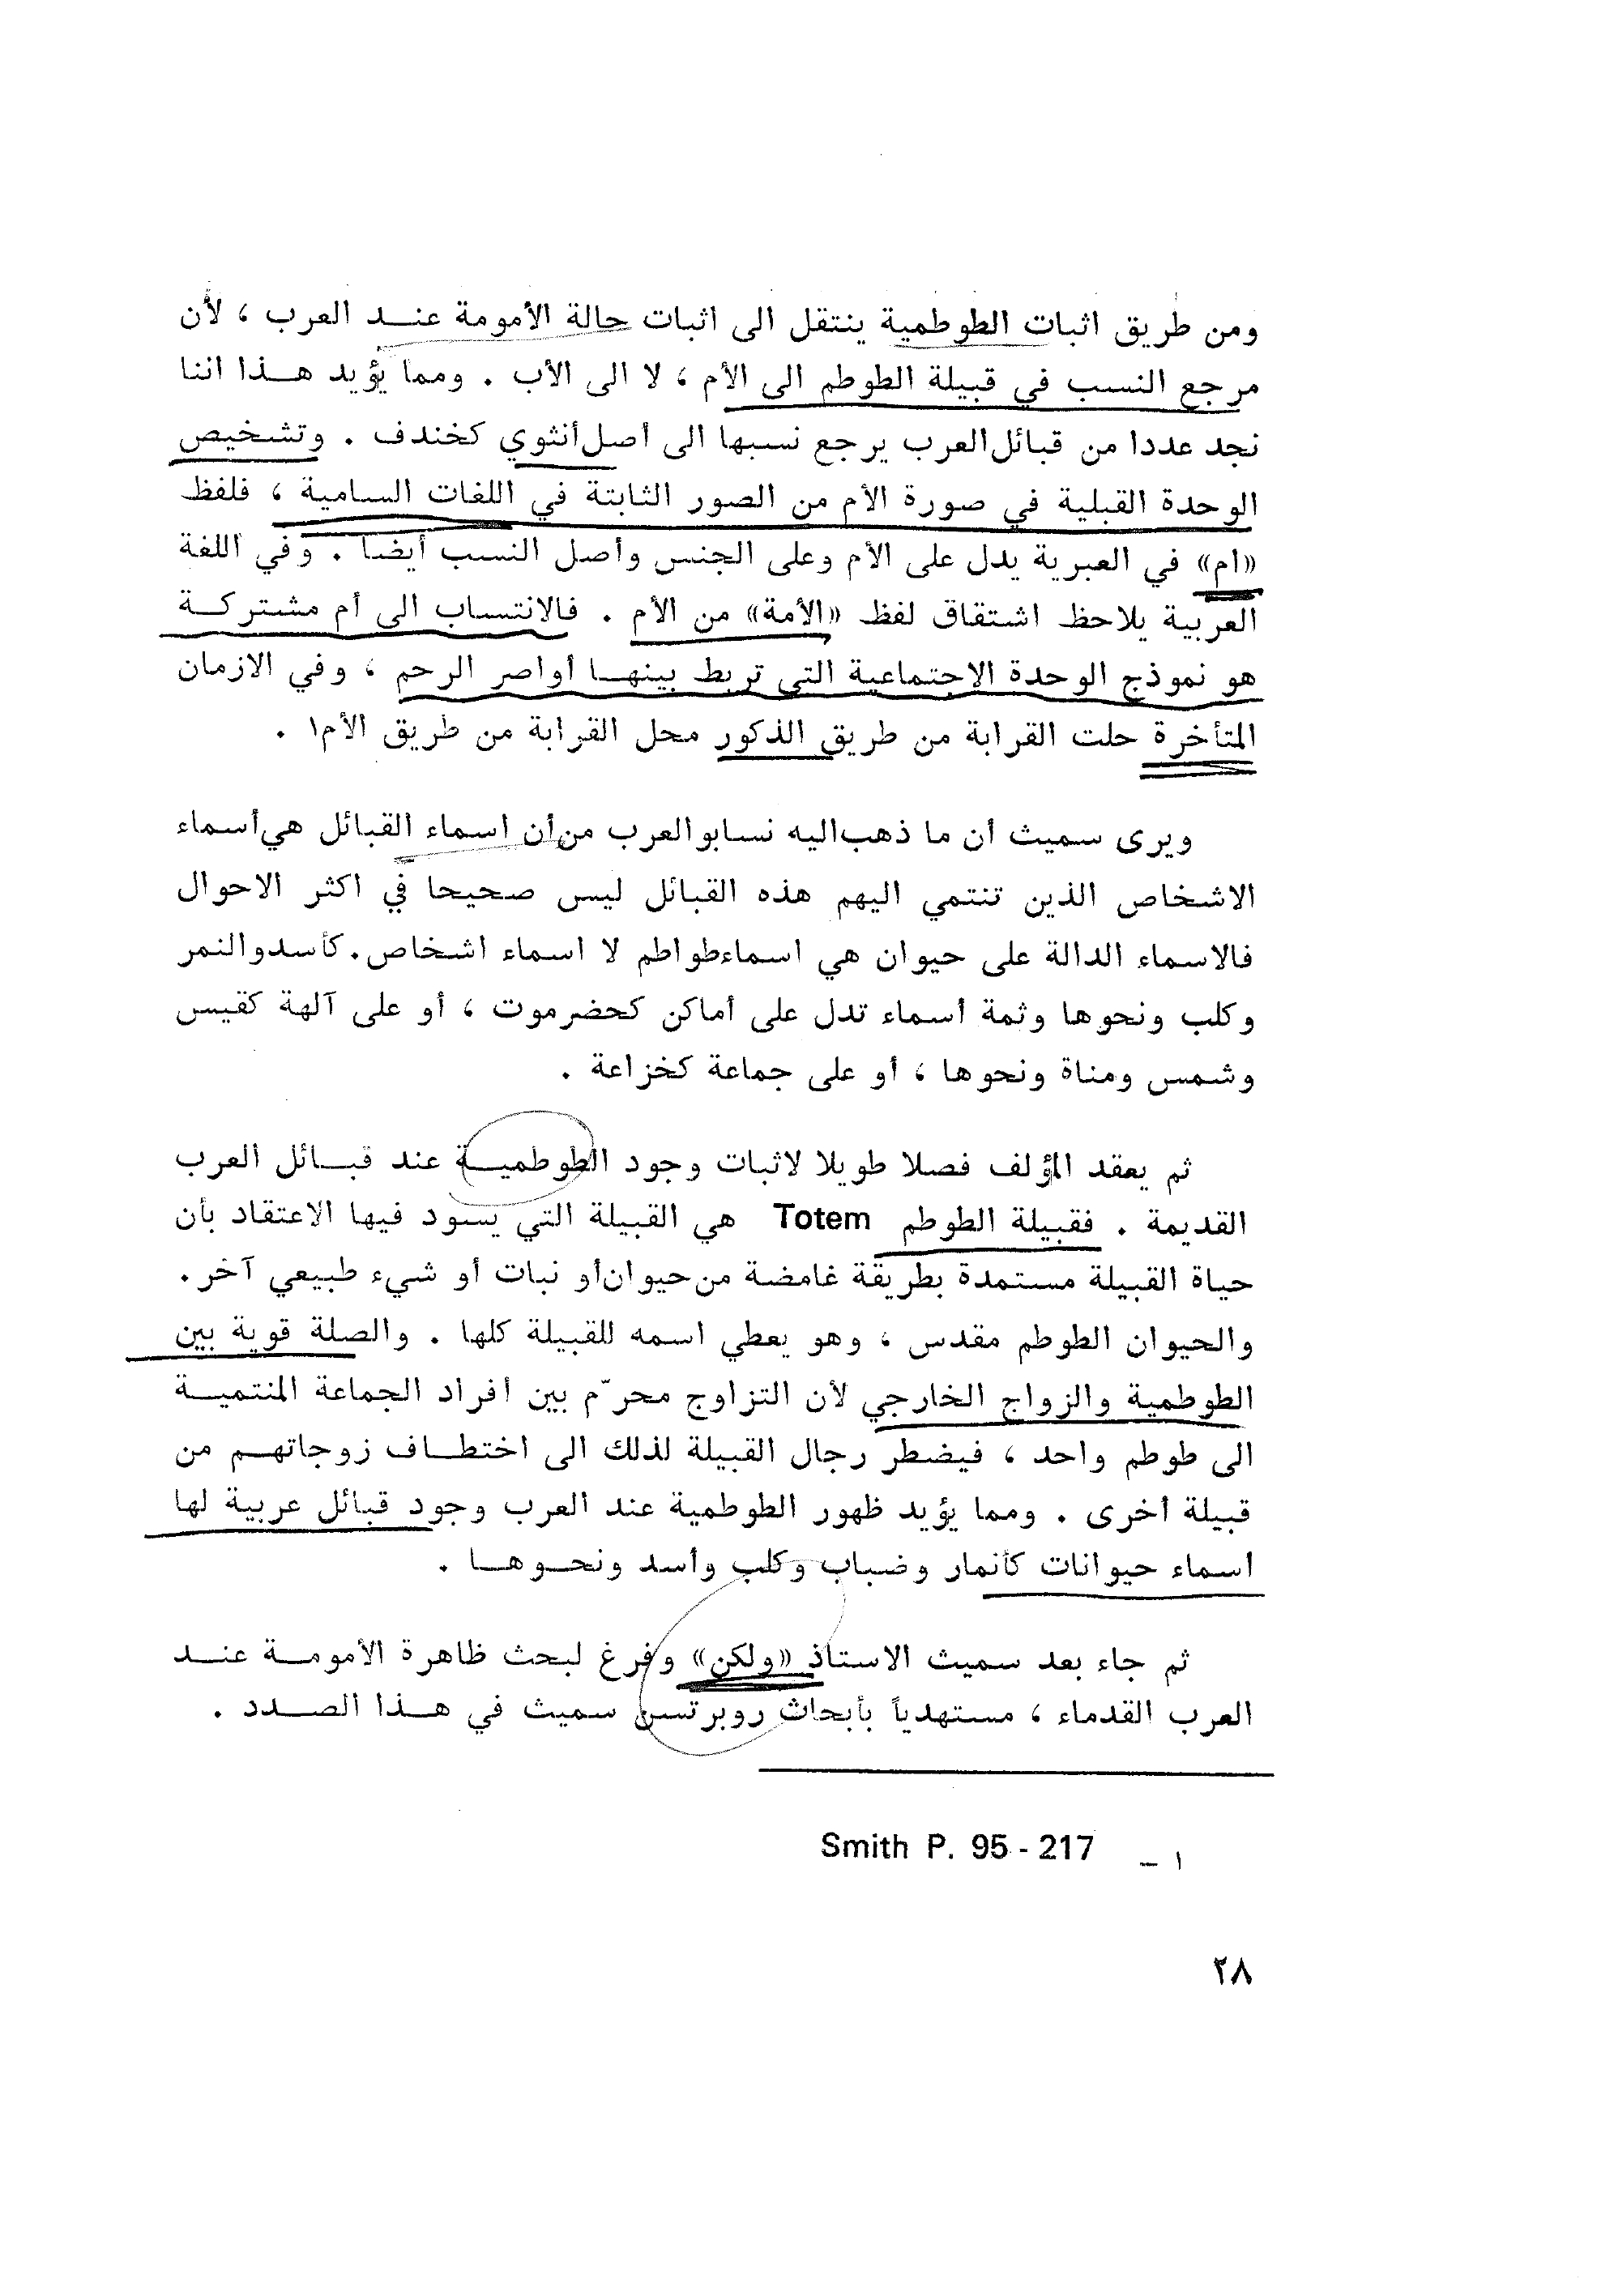 ومن طريق اثبات الطوطمية ينتقل الى اثبات حالة الأمومة عنـد العرب ، لأن
مرجع النسب في قبيلة الطوطم الى الأم ، لا الى الأب . ومما يؤيد هـذا اننا
نجد عددا من قبائل العرب يرجع نسبها الى أصل أنثوي كخندف . وتشخيص
الوحدة القبلية في صورة الأم من الصور الثابتة في اللغات السامية ، فلفظ
«ام» في العبرية يدل على الأم وعلى الجنس وأصل النسب أيضا . وفي اللغة
العربية يلاحظ اشتقاق لفظ «الأمة» من الأم . فالانتساب الى أم مشتركـة
هو نموذج الوحدة الاجتماعية التي تربط بينهـا أواصر الرحم ، وفي الازمان
المتأخرة حلت القرابة من طريق الذكور محل القرابة من طريق الأم١ .
ويرى سميث أن ما ذهب اليه نسابو العرب من أن اسماء القبائل هي أسماء
الاشخاص الذين تنتمي اليهم هذه القبائل ليس صحيحا في اكثر الاحوال
فالاسماء الدالة على حيوان هي اسماء طواطم لا اسماء اشخاص. كأسد والنمر
وكلب ونحوها وثمة أسماء تدل على أماكن كحضرموت ، أو على آلهة كقيس
وشمس ومناة ونحوها ، أو على جماعة كخزاعة .
ثم يعقد المؤلف فصلا طويلا لاثبات وجود الطوطميـة عند قبـائل العرب
القديمة . فقبيلة الطوطم Totem هي القبيلة التي يسود فيها الاعتقاد بأن
حياة القبيلة مستمدة بطريقة غامضة من حيوان أو نبات أو شيء طبيعي آخر .
والحيوان الطوطم مقدس ، وهو يعطي اسمه للقبيلة كلها . والصلة قوية بين
الطوطمية والزواج الخارجي لأن التزاوج محرّم بين أفراد الجماعة المنتميـة
الى طوطم واحد ، فيضطر رجال القبيلة لذلك الى اختطـاف زوجاتهـم من
قبيلة أخرى . ومما يؤيد ظهور الطوطمية عند العرب وجود قبائل عربية لها
أسماء حيوانات كأنمار وضباب وكلب وأسد ونحـوهـا .
ثم جاء بعد سميث الاستاذ «ولكن» وفرغ لبحث ظاهرة الأمومـة عنـد
العرب القدماء ، مستهدياً بأبحاث روبرتسن سميث في هـذا الصـدد .
١ – Smith P. 95 - 217
٢٨